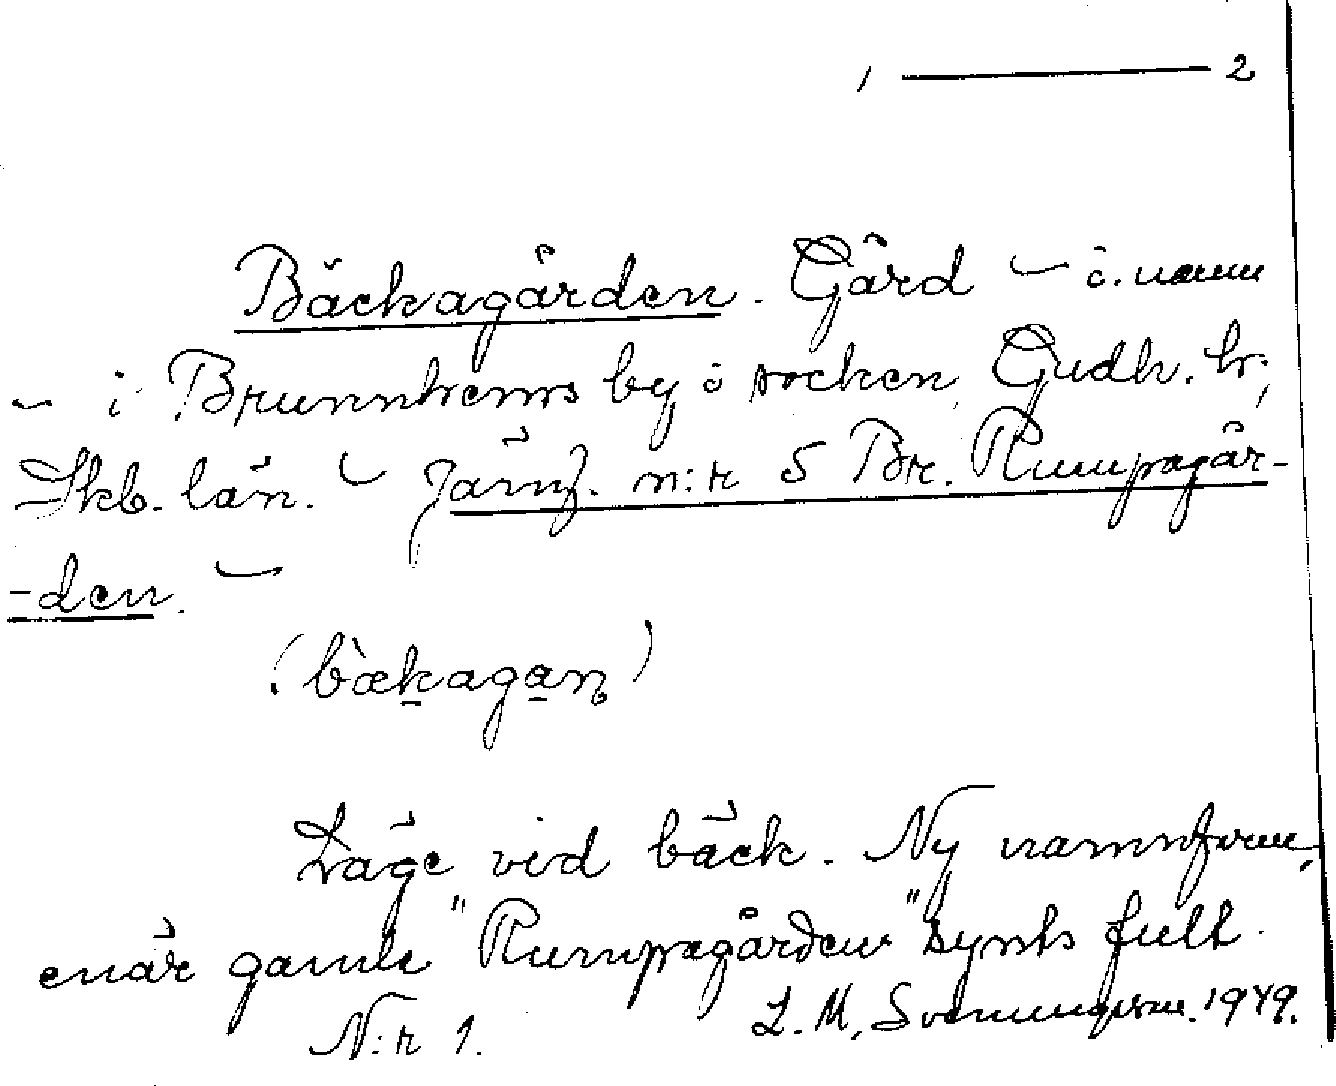 1 ——— 2
Bäckagården. Gård – ö. namn
– i Brunnhems by o socken, Gudh. hr,
Skb. län. – Jämf. n:r 5 Br. Rumpagår-
-den. –
(bækagan)
Läge vid bäck. Ny namnform,
enär gamla "Rumpagården" synts fult.
N:r 1. L. M. Svenungsson. 1949.